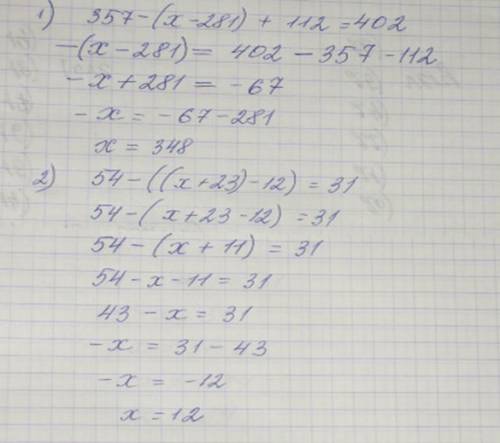 1) 357-(x-281) + 112 = 402
-(x-281) = 402 - 357 - 112
-x + 281 = -67
-x = -67-281
x = 348
2) 54-((x+23)-12) = 31
54-(x+23-12) = 31
54-(x + 11) = 31
54-x-11 = 31
43 - x = 31
-x = 31 - 43
-x = -12
x = 12